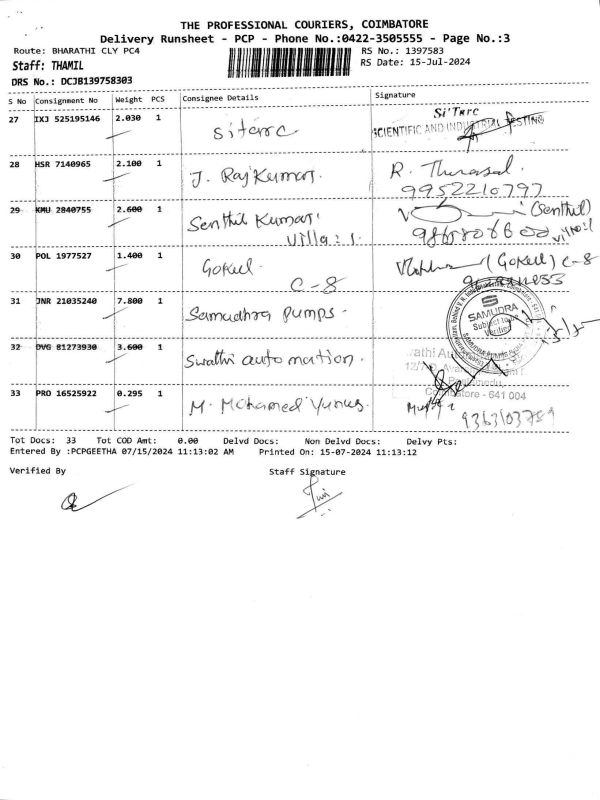 THE PROFESSIONAL COURIERS, COIMBATORE
Delivery Runsheet - PCP - Phone No.:0422-3505555 - Page No.:3
Route: BHARATHI CLY PC4
RS No.: 1397583
Staff: THAMIL
RS Date: 15-Jul-2024
DRS No.: DCJB139758303
S No Consignment No Weight PCS Consignee Details Signature
27 IXJ 525195146 2.030 1 sitarc
Si'Tarc
SCIENTIFIC AND INDUSTRIAL TESTING
28 HSR 7140965 2.100 1 J. RajKumar. R.
9952210797
29 KMU 2840755 2.600 1 Senthil Kumar (Senthil)
Villa: 1.
30 POL 1977527 1.400 1 Gokul. (Gokul) C-8
C-8
31 JNR 21035240 7.800 1 Samudhra pumps.
SAMUDRA
Subject to be
Verified
32 DVG 81273930 3.600 1 Swathi automation.
Coimbatore - 641 004
33 PRO 16525922 0.295 1 M. Mohamed Yunus.
9363103789
Tot Docs: 33 Tot COD Amt: 0.00 Delvd Docs: Non Delvd Docs: Delvy Pts:
Entered By :PCPGEETHA 07/15/2024 11:13:02 AM Printed On: 15-07-2024 11:13:12
Verified By Staff Signature